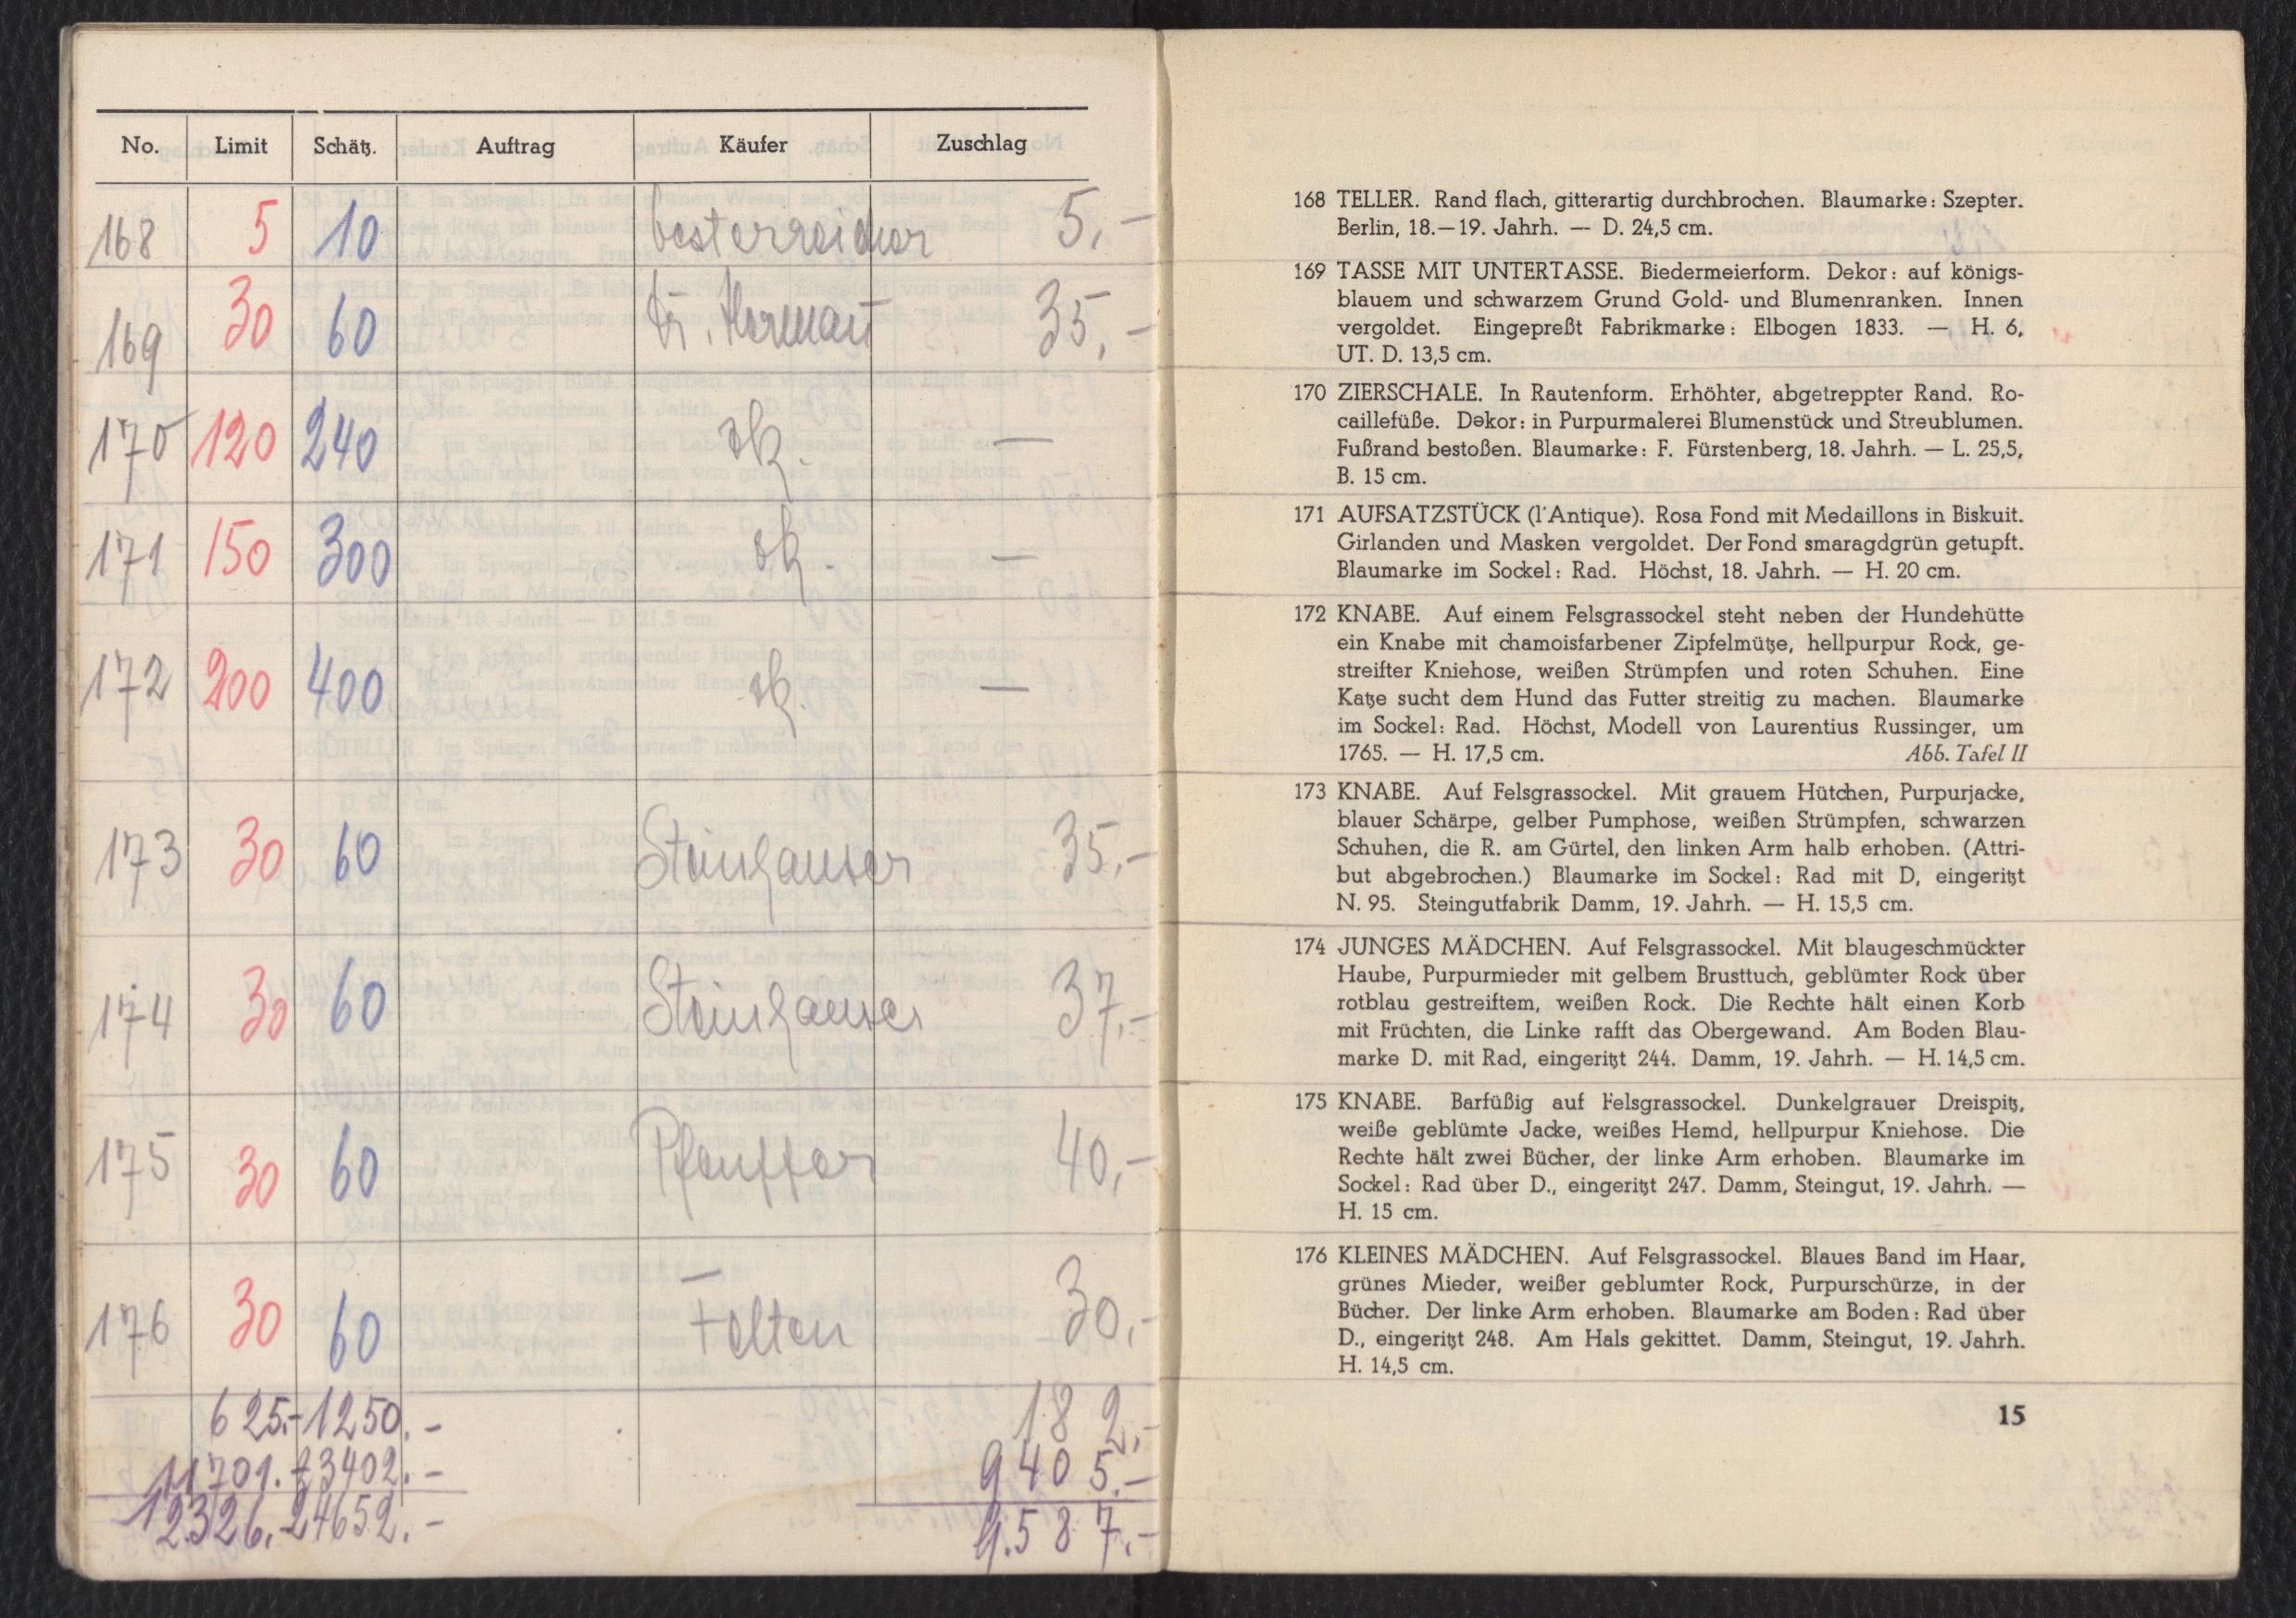 No. Limit Schätz. Auftrag Käufer Zuschlag
168 5 10 Oesterreicher 5,-
169 30 60 Dr. Hermann 35,-
170 120 240 zk. —
171 150 300 zk. —
172 200 400 zk. —
173 30 60 Steinhauser 35,-
174 30 60 Steinhauser 37,-
175 30 60 Pfeuffer 40,-
176 30 60 Felten 30,-
625.- 1250.- 182,-
11701.- 23402.- 9405.-
12326.- 24652.- 9.587,-
168 TELLER. Rand flach, gitterartig durchbrochen. Blaumarke: Szepter.
Berlin, 18.—19. Jahrh. — D. 24,5 cm.
169 TASSE MIT UNTERTASSE. Biedermeierform. Dekor: auf königs-
blauem und schwarzem Grund Gold- und Blumenranken. Innen
vergoldet. Eingepreßt Fabrikmarke: Elbogen 1833. — H. 6,
UT. D. 13,5 cm.
170 ZIERSCHALE. In Rautenform. Erhöhter, abgetreppter Rand. Ro-
caillefüße. Dekor: in Purpurmalerei Blumenstück und Streublumen.
Fußrand bestoßen. Blaumarke: F. Fürstenberg, 18. Jahrh. — L. 25,5,
B. 15 cm.
171 AUFSATZSTÜCK (l'Antique). Rosa Fond mit Medaillons in Biskuit.
Girlanden und Masken vergoldet. Der Fond smaragdgrün getupft.
Blaumarke im Sockel: Rad. Höchst, 18. Jahrh. — H. 20 cm.
172 KNABE. Auf einem Felsgrassockel steht neben der Hundehütte
ein Knabe mit chamoisfarbener Zipfelmütze, hellpurpur Rock, ge-
streifter Kniehose, weißen Strümpfen und roten Schuhen. Eine
Katze sucht dem Hund das Futter streitig zu machen. Blaumarke
im Sockel: Rad. Höchst, Modell von Laurentius Russinger, um
1765. — H. 17,5 cm. Abb. Tafel II
173 KNABE. Auf Felsgrassockel. Mit grauem Hütchen, Purpurjacke,
blauer Schärpe, gelber Pumphose, weißen Strümpfen, schwarzen
Schuhen, die R. am Gürtel, den linken Arm halb erhoben. (Attri-
but abgebrochen.) Blaumarke im Sockel: Rad mit D, eingeritzt
N. 95. Steingutfabrik Damm, 19. Jahrh. — H. 15,5 cm.
174 JUNGES MÄDCHEN. Auf Felsgrassockel. Mit blaugeschmückter
Haube, Purpurmieder mit gelbem Brusttuch, geblümter Rock über
rotblau gestreiftem, weißen Rock. Die Rechte hält einen Korb
mit Früchten, die Linke rafft das Obergewand. Am Boden Blau-
marke D. mit Rad, eingeritzt 244. Damm, 19. Jahrh. — H. 14,5 cm.
175 KNABE. Barfüßig auf Felsgrassockel. Dunkelgrauer Dreispitz,
weiße geblümte Jacke, weißes Hemd, hellpurpur Kniehose. Die
Rechte hält zwei Bücher, der linke Arm erhoben. Blaumarke im
Sockel: Rad über D., eingeritzt 247. Damm, Steingut, 19. Jahrh. —
H. 15 cm.
176 KLEINES MÄDCHEN. Auf Felsgrassockel. Blaues Band im Haar,
grünes Mieder, weißer geblumter Rock, Purpurschürze, in der
Bücher. Der linke Arm erhoben. Blaumarke am Boden: Rad über
D., eingeritzt 248. Am Hals gekittet. Damm, Steingut, 19. Jahrh.
H. 14,5 cm.
15